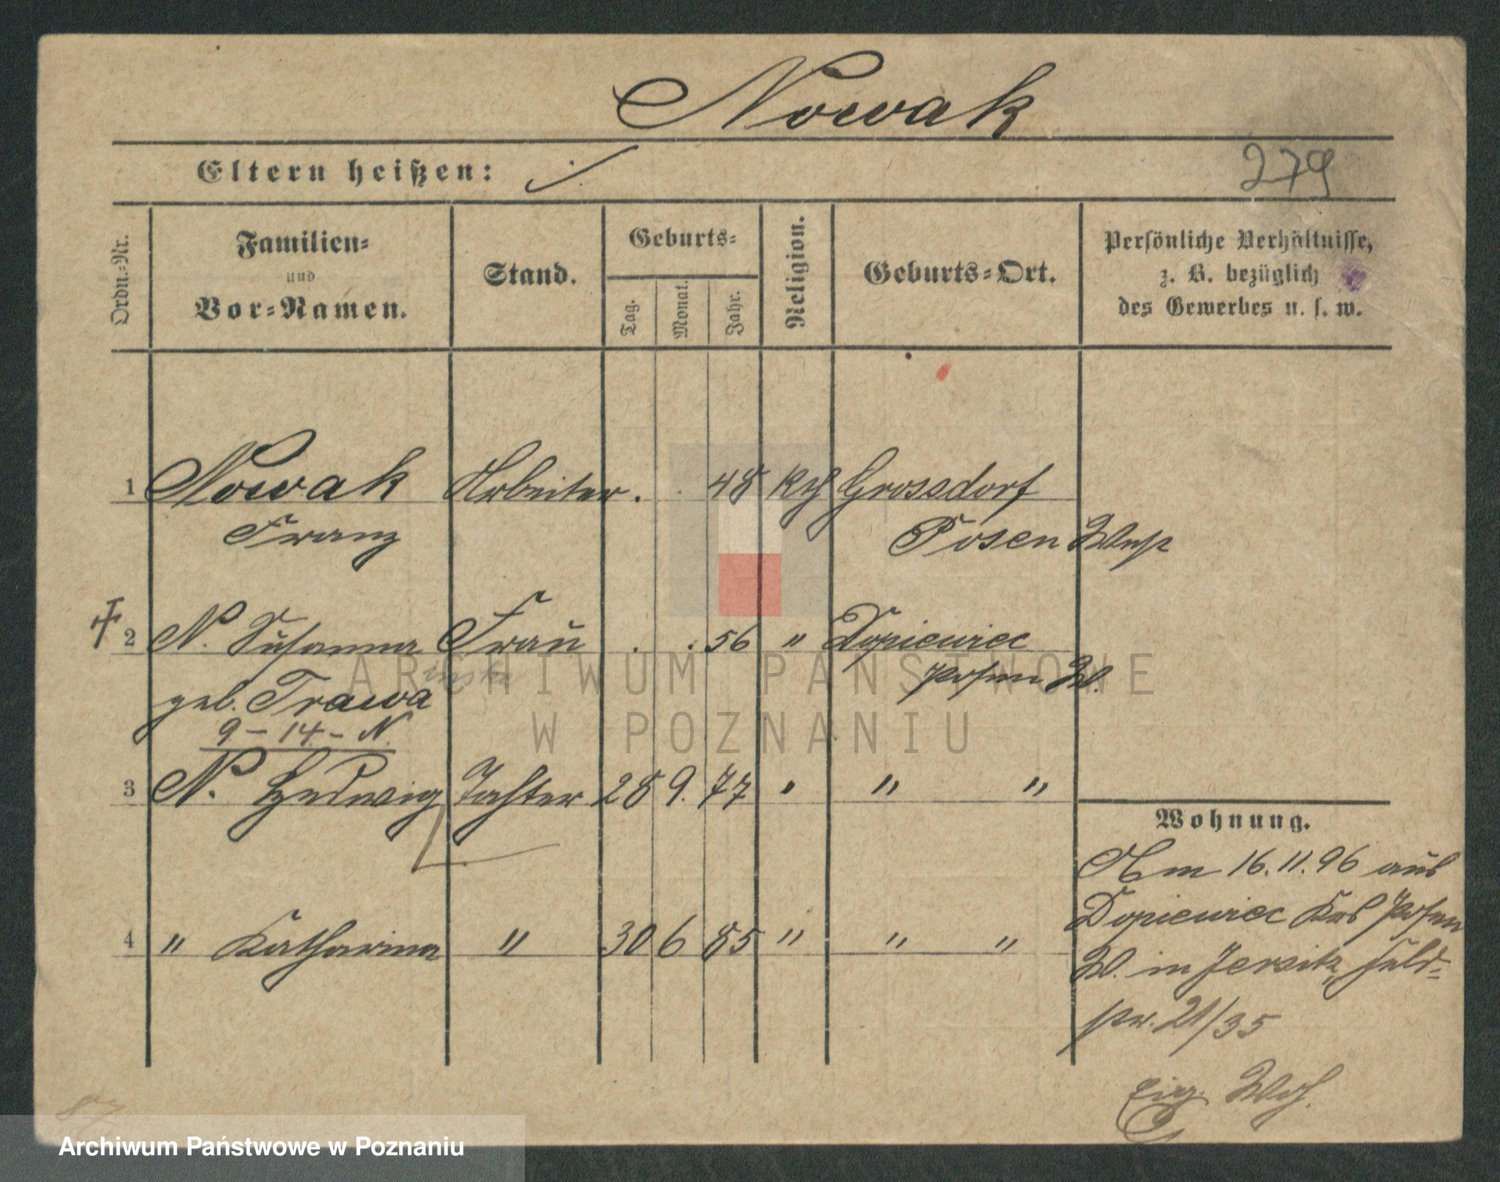 Nowak
Eltern heißen:
279
Ordn.-Nr.
Familien-
und
Vor-Namen.
Stand.
Geburts-
Tag.
Monat.
Jahr.
Religion.
Geburts-Ort.
Persönliche Verhältnisse,
z. B. bezüglich
des Gewerbes u. s. w.
1 Nowak Arbeiter . . 48 Kth Grossdorf
Franz Posen West
2 N. Susanna Frau . . 56 " Dopiewiec
geb. Trawa Posen W.
9-14-N
3 N. Hedwig Tochter 28 9. 77 " " "
Wohnung.
Am 16.11.96 aus
4 " Katharina " 30 6 85 " " "
Dopiewiec Krs Posen
W. in Jersitz, Feld-
str. 21/35
Eig. Woh.
ARCHIWUM PAŃSTWOWE
W POZNANIU
Archiwum Państwowe w Poznaniu